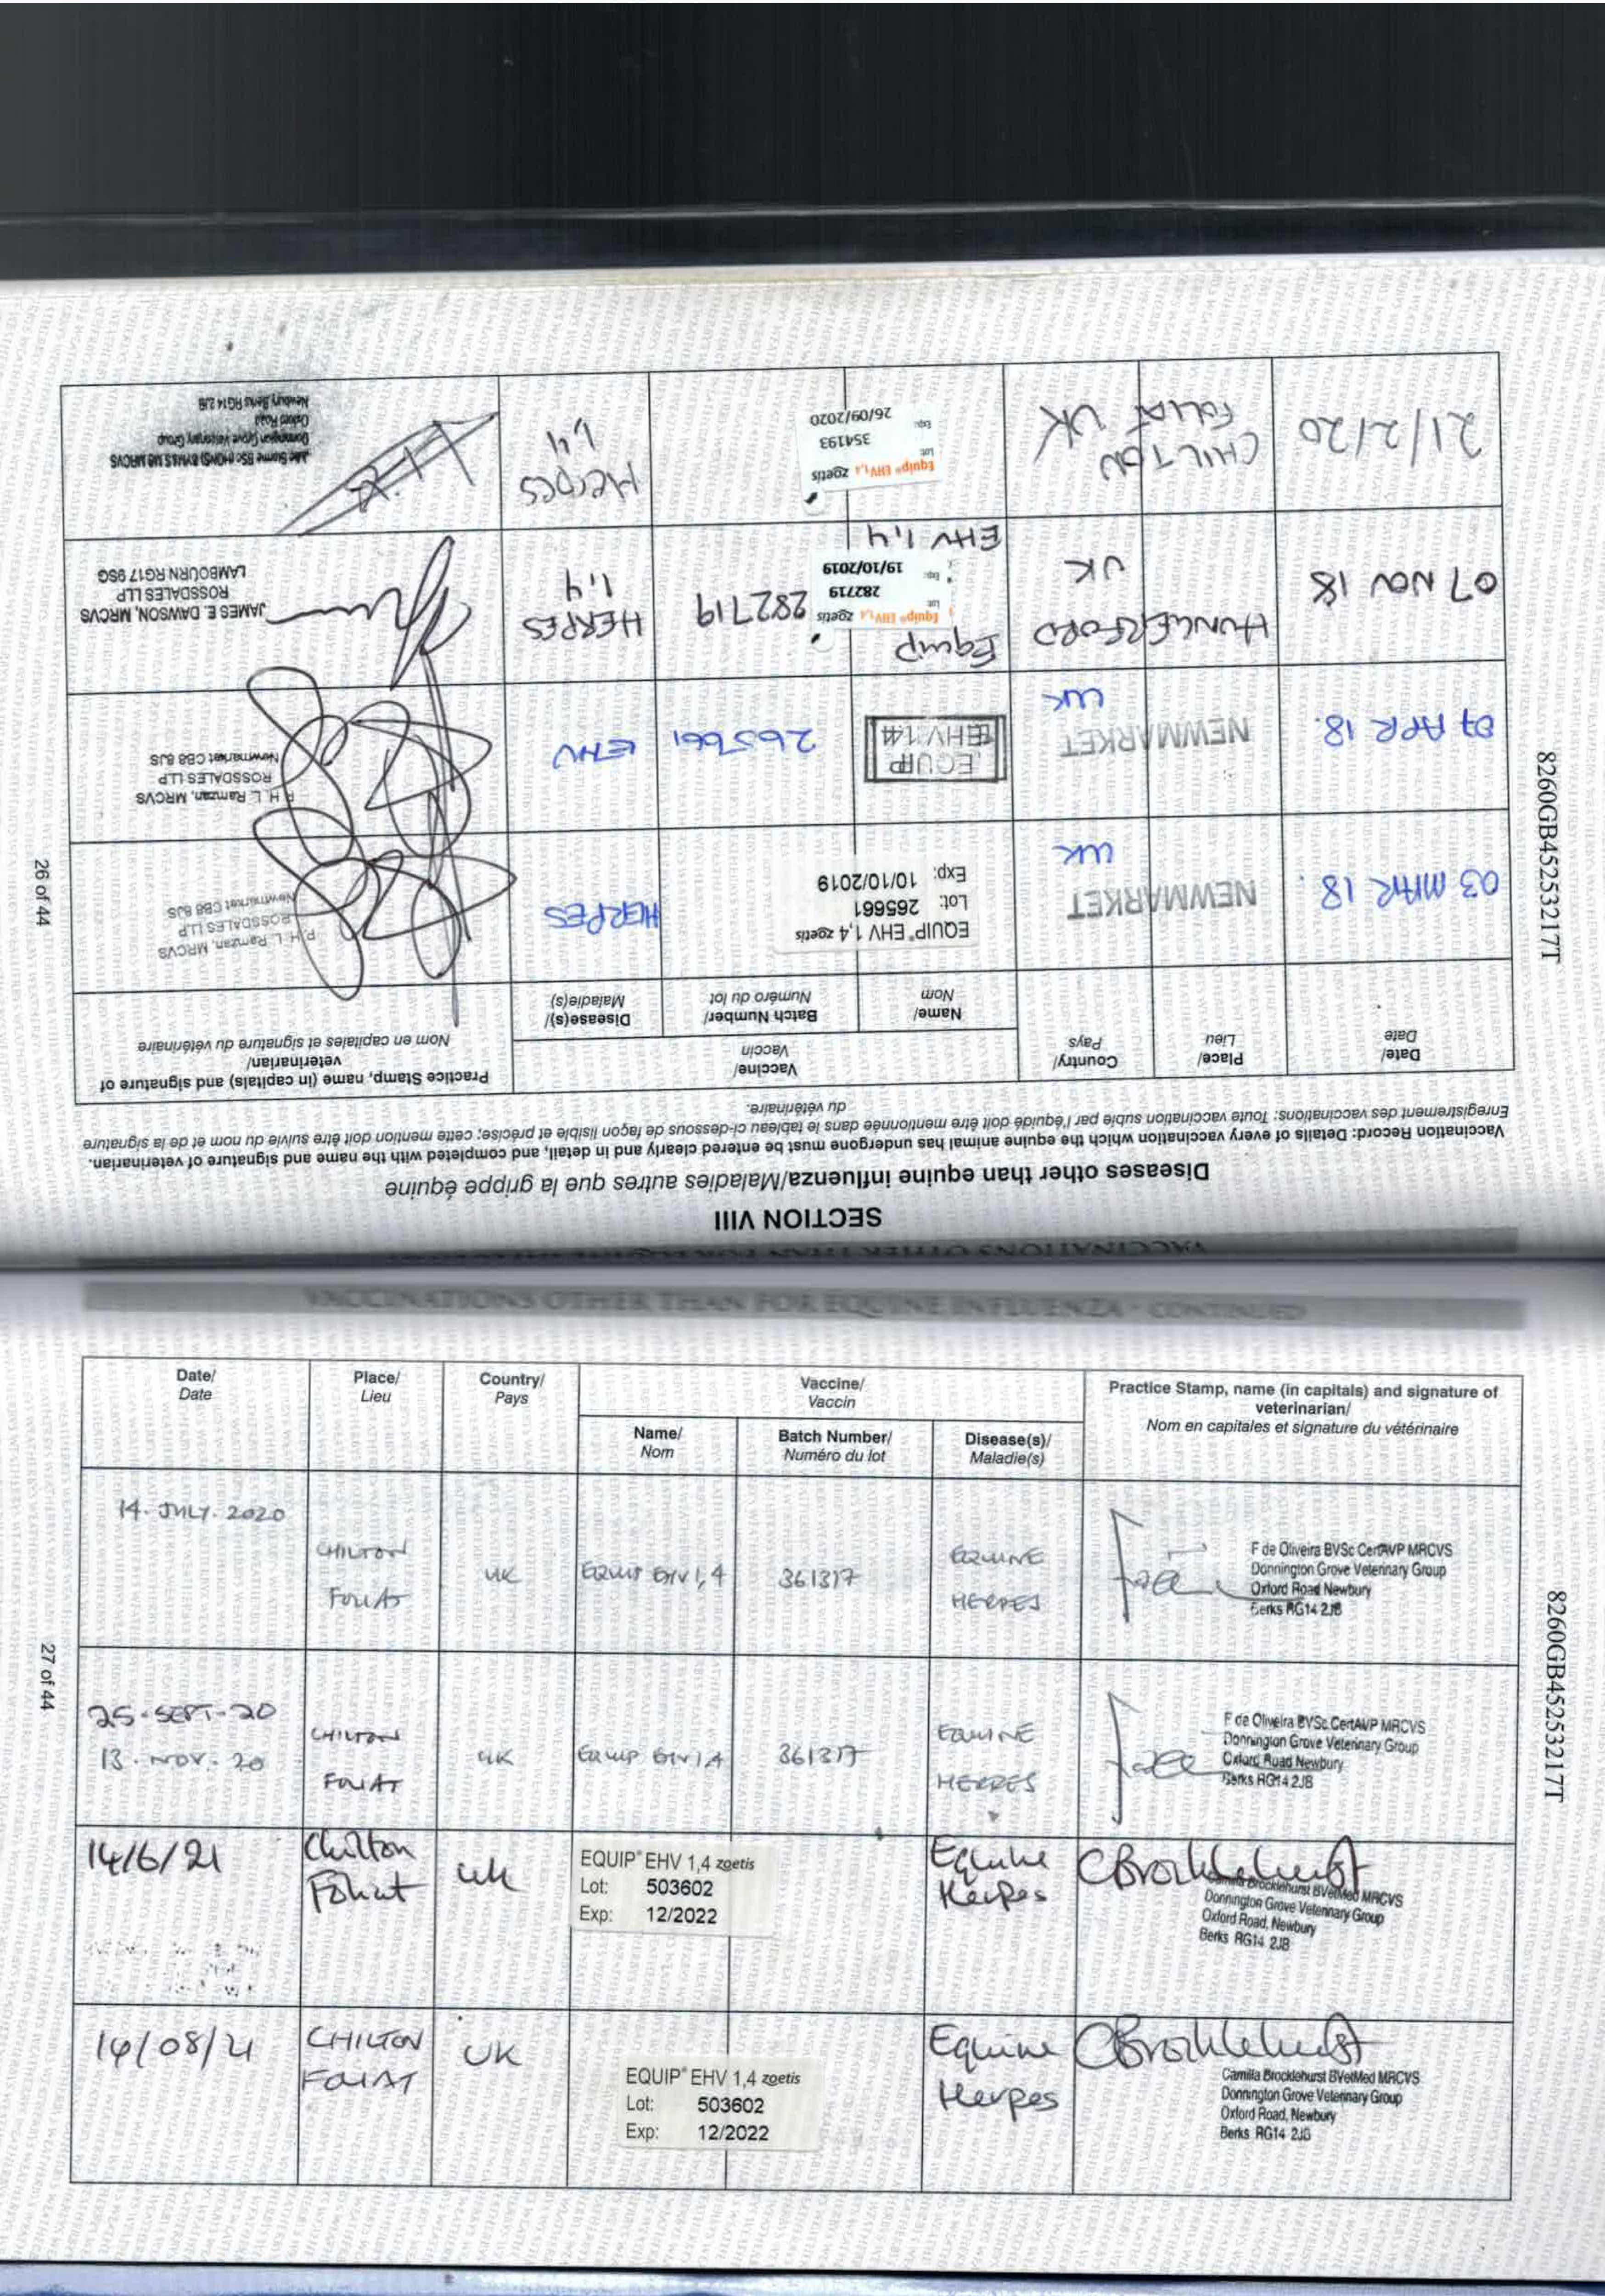 SECTION VIII
Diseases other than equine influenza/Maladies autres que la grippe équine
Vaccination Record: Details of every vaccination which the equine animal has undergone must be entered clearly and in detail, and completed with the name and signature of veterinarian.
Enregistrement des vaccinations: Toute vaccination subie par l'équidé doit être mentionnée dans le tableau ci-dessous de façon lisible et précise; cette mention doit être suivie du nom et de la signature
du vétérinaire.
Date/
Date
Place/
Lieu
Country/
Pays
Vaccine/
Vaccin
Name/
Nom
Batch Number/
Numéro du lot
Disease(s)/
Maladie(s)
Practice Stamp, name (in capitals) and signature of
veterinarian/
Nom en capitales et signature du vétérinaire
03 MAR 18.
NEWMARKET
UK
EQUIP® EHV 1,4 zoetis
Lot: 265661
Exp: 10/10/2019
HERPES
P. H. L. Ramzan, MRCVS
ROSSDALES LLP
Newmarket CB8 8JS
07 APR 18.
NEWMARKET
UK
EQUIP
EHV 1.4
265661
EHV
P. H. L. Ramzan, MRCVS
ROSSDALES LLP
Newmarket CB8 8JS
07 NOV 18
HUNGERFORD
UK
Equip
Equip® EHV 1,4 zoetis
Lot: 282719
Exp: 19/10/2019
EHV 1,4
282719
HERPES
1,4
JAMES E. DAWSON, MRCVS
ROSSDALES LLP
LAMBOURN RG17 9SG
21/2/20
CHILTON
FOLIAT UK
UK
Equip® EHV 1,4 zoetis
Lot: 354193
Exp: 26/09/2020
Herpes
1,4
BSc (HONS) BVM&S MRCVS
Donnington Grove Veterinary Group
Oxford Road
Newbury Berks RG14 2JB
8260GB45253217T
26 of 44
VACCINATIONS OTHER THAN FOR EQUINE INFLUENZA - CONTINUED
Date/
Date
Place/
Lieu
Country/
Pays
Vaccine/
Vaccin
Name/
Nom
Batch Number/
Numéro du lot
Disease(s)/
Maladie(s)
Practice Stamp, name (in capitals) and signature of
veterinarian/
Nom en capitales et signature du vétérinaire
14. JULY. 2020
CHILTON
FOLIAT
UK
EQUIP EHV 1,4
361317
EQUINE
HERPES
F de Oliveira BVSc CertAVP MRCVS
Donnington Grove Veterinary Group
Oxford Road Newbury
Berks RG14 2JB
25-SEPT-20
13. NOV. 20
CHILTON
FOLIAT
UK
EQUIP EHV 1,4
361317
EQUINE
HERPES
F de Oliveira BVSc CertAVP MRCVS
Donnington Grove Veterinary Group
Oxford Road Newbury
Berks RG14 2JB
14/6/21
Chilton
Foliat
UK
EQUIP® EHV 1,4 zoetis
Lot: 503602
Exp: 12/2022
Equine
Herpes
CBrocklehurst
Camilla Brocklehurst BVetMed MRCVS
Donnington Grove Veterinary Group
Oxford Road, Newbury
Berks RG14 2JB
14/08/21
CHILTON
FOLIAT
UK
EQUIP® EHV 1,4 zoetis
Lot: 503602
Exp: 12/2022
Equine
Herpes
CBrocklehurst
Camilla Brocklehurst BVetMed MRCVS
Donnington Grove Veterinary Group
Oxford Road, Newbury
Berks RG14 2JB
8260GB45253217T
27 of 44